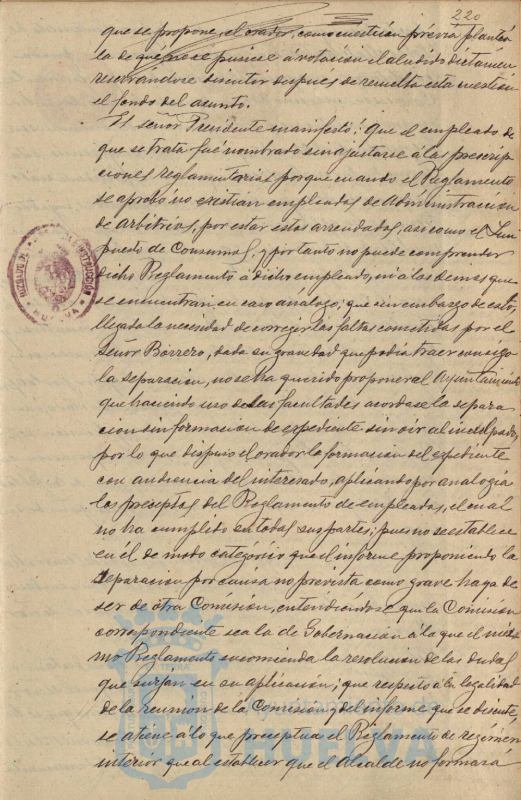 220
que se propone, el orador, como cuestión prévia plantéa
la de que no se pusiese á votación el aludido dictámen
reservandose discutir despues de resuelta esta cuestión
el fondo del asunto.
El señor Presidente manifestó: Que el empleado de
que se trata fué nombrado sin ajustarse á las prescrip-
ciones reglamentarias porque cuando el Reglamento
se aprobó no existian empleados de Administracion
de arbitrios, por estar estos arrendados, asi como el Im
puesto de Consumos, y por tanto no puede comprender
dicho Reglamento á dicho empleado, ni á los demas que
se encuentran en caso análogo; que sin embargo de esto,
llegada la necesidad de corregir las faltas cometidas por el
señor Borrero, dada su gravedad que podia traer consigo
la separación, no se ha querido proponer al Ayuntamiento
que haciendo uso de sus facultades acordase la separa
cion sin formacion de expediente sin oir al inculpado,
por lo que dispuso el orador la formación del expediente
con audiencia del interesado, aplicando por analogia
los preceptos del Reglamento de empleados, el cual
no ha cumplido en todas sus partes; pues no se establece
en él de modo categórico que el informe proponiendo la
separacion por causa no prevista como grave haga de
ser de otra Comisión, entendiéndose que la Comisión
correspondiente sea la de Gobernación á la que el mis
mo Reglamento encomienda la resolucion de las dudas
que surjan en su aplicación; que respecto á la legalidad
de la reunion de la Comision y del informe que se discute,
se atiene á lo que preceptua el Reglamento de regimen
interior que al establecer que el Alcalde no formará
HUELVA
HUELVA